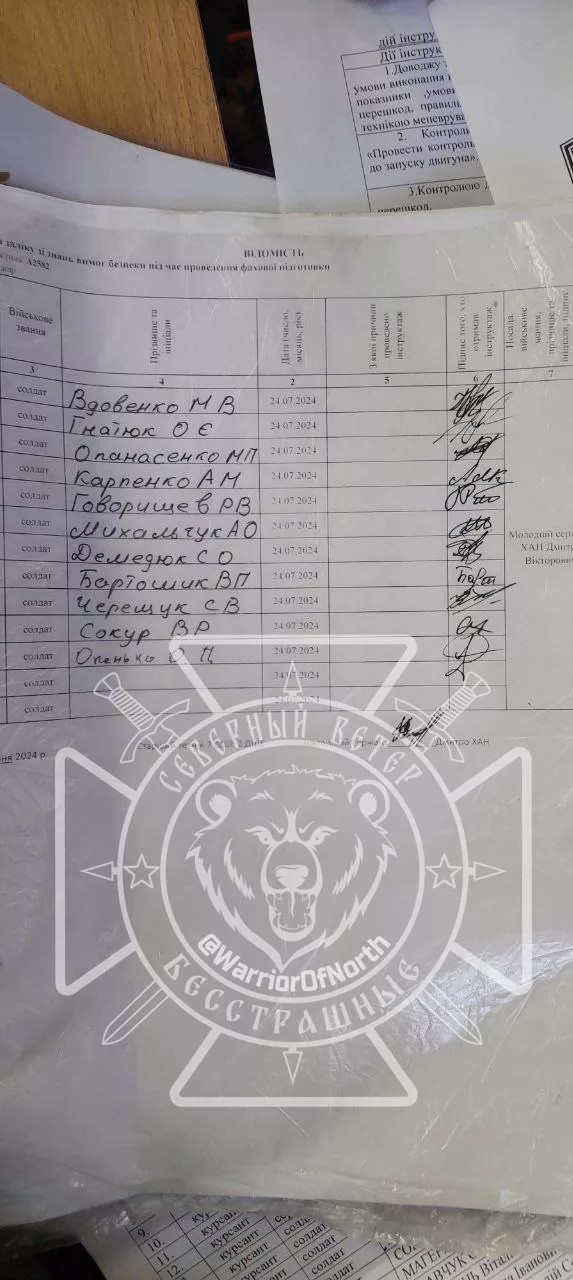 дій інстру
Дії інструк
1.Доводжу
умови виконання
показники ,умов
перешкод, правил
технікою меневрува
2. Контрол
«Провести контроль
до запуску двигуна».
3.Контролюю
перешкод.
ВІДОМІСТЬ
заліку зі знань, вимог безпеки під час проведення фахової підготовки
А2582
Військове звання
Прізвище та ініціали
Дата (число, місяць, рік)
З якої причини проведено інструктаж
Підпис того, хто отримав інструктаж
Посада, військове звання, прізвище та ініціали, підпис
3 4 2 5 6 7
солдат Вдовенко М В 24.07.2024
солдат Гнатюк О Є 24.07.2024
солдат Опанасенко М П 24.07.2024
солдат Карпенко А М 24.07.2024
солдат Говорищев Р В 24.07.2024
солдат Михальчук А О 24.07.2024
солдат Демедюк С О 24.07.2024
солдат Бартошик В П 24.07.2024
солдат Черещук С В 24.07.2024
солдат Сокур В Р 24.07.2024
солдат Опенько О П 24.07.2024
солдат 24.07.2024
солдат
Молодший серж
ХАН Дмитр
Вікторович
ня 2024 р
Дмитро ХАН
СЕВЕРНЫЙ ВЕТЕР
@WarriorOfNorth
БЕССТРАШНЫЕ
9. курсант
10. курсант солдат
11. курсант солдат
12. курсант солдат
МАГЕР
ВЧУК
Іванови